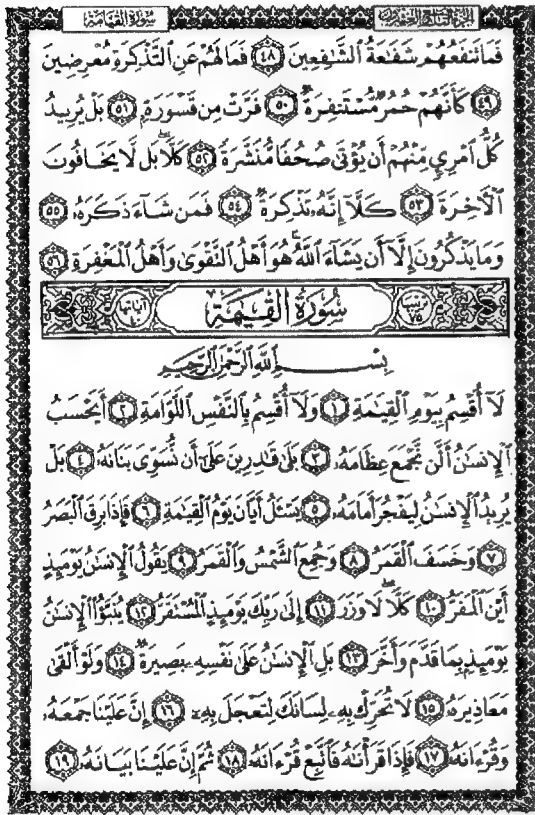 سُورَةُ القِيَامَةِ الجُزْءُ التَّاسِعُ وَالعِشْرُونَ
فَمَا تَنفَعُهُمْ شَفَٰعَةُ ٱلشَّٰفِعِينَ ٤٨ فَمَا لَهُمْ عَنِ ٱلتَّذْكِرَةِ مُعْرِضِينَ
٤٩ كَأَنَّهُمْ حُمُرٌ مُّسْتَنفِرَةٌ ٥٠ فَرَّتْ مِن قَسْوَرَةٍ ٥١ بَلْ يُرِيدُ
كُلُّ ٱمْرِئٍ مِّنْهُمْ أَن يُؤْتَىٰ صُحُفًا مُّنَشَّرَةً ٥٢ كَلَّا ۖ بَل لَّا يَخَافُونَ
ٱلْآخِرَةَ ٥٣ كَلَّآ إِنَّهُۥ تَذْكِرَةٌ ٥٤ فَمَن شَآءَ ذَكَرَهُۥ ٥٥
وَمَا يَذْكُرُونَ إِلَّآ أَن يَشَآءَ ٱللَّهُ ۚ هُوَ أَهْلُ ٱلتَّقْوَىٰ وَأَهْلُ ٱلْمَغْفِرَةِ ٥٦
ترتيبها ٧٥ سُورَةُ القِيَٰمَةِ آياتها ٤٠
بِسْمِ ٱللَّهِ ٱلرَّحْمَٰنِ ٱلرَّحِيمِ
لَآ أُقْسِمُ بِيَوْمِ ٱلْقِيَٰمَةِ ١ وَلَآ أُقْسِمُ بِٱلنَّفْسِ ٱللَّوَّامَةِ ٢ أَيَحْسَبُ
ٱلْإِنسَٰنُ أَلَّن نَّجْمَعَ عِظَامَهُۥ ٣ بَلَىٰ قَٰدِرِينَ عَلَىٰٓ أَن نُّسَوِّىَ بَنَانَهُۥ ٤ بَلْ
يُرِيدُ ٱلْإِنسَٰنُ لِيَفْجُرَ أَمَامَهُۥ ٥ يَسْـَٔلُ أَيَّانَ يَوْمُ ٱلْقِيَٰمَةِ ٦ فَإِذَا بَرِقَ ٱلْبَصَرُ
٧ وَخَسَفَ ٱلْقَمَرُ ٨ وَجُمِعَ ٱلشَّمْسُ وَٱلْقَمَرُ ٩ يَقُولُ ٱلْإِنسَٰنُ يَوْمَئِذٍ
أَيْنَ ٱلْمَفَرُّ ١٠ كَلَّا لَا وَزَرَ ١١ إِلَىٰ رَبِّكَ يَوْمَئِذٍ ٱلْمُسْتَقَرُّ ١٢ يُنَبَّؤُا۟ ٱلْإِنسَٰنُ
يَوْمَئِذٍۭ بِمَا قَدَّمَ وَأَخَّرَ ١٣ بَلِ ٱلْإِنسَٰنُ عَلَىٰ نَفْسِهِۦ بَصِيرَةٌ ١٤ وَلَوْ أَلْقَىٰ
مَعَاذِيرَهُۥ ١٥ لَا تُحَرِّكْ بِهِۦ لِسَانَكَ لِتَعْجَلَ بِهِۦٓ ١٦ إِنَّ عَلَيْنَا جَمْعَهُۥ
وَقُرْءَانَهُۥ ١٧ فَإِذَا قَرَأْنَٰهُ فَٱتَّبِعْ قُرْءَانَهُۥ ١٨ ثُمَّ إِنَّ عَلَيْنَا بَيَانَهُۥ ١٩